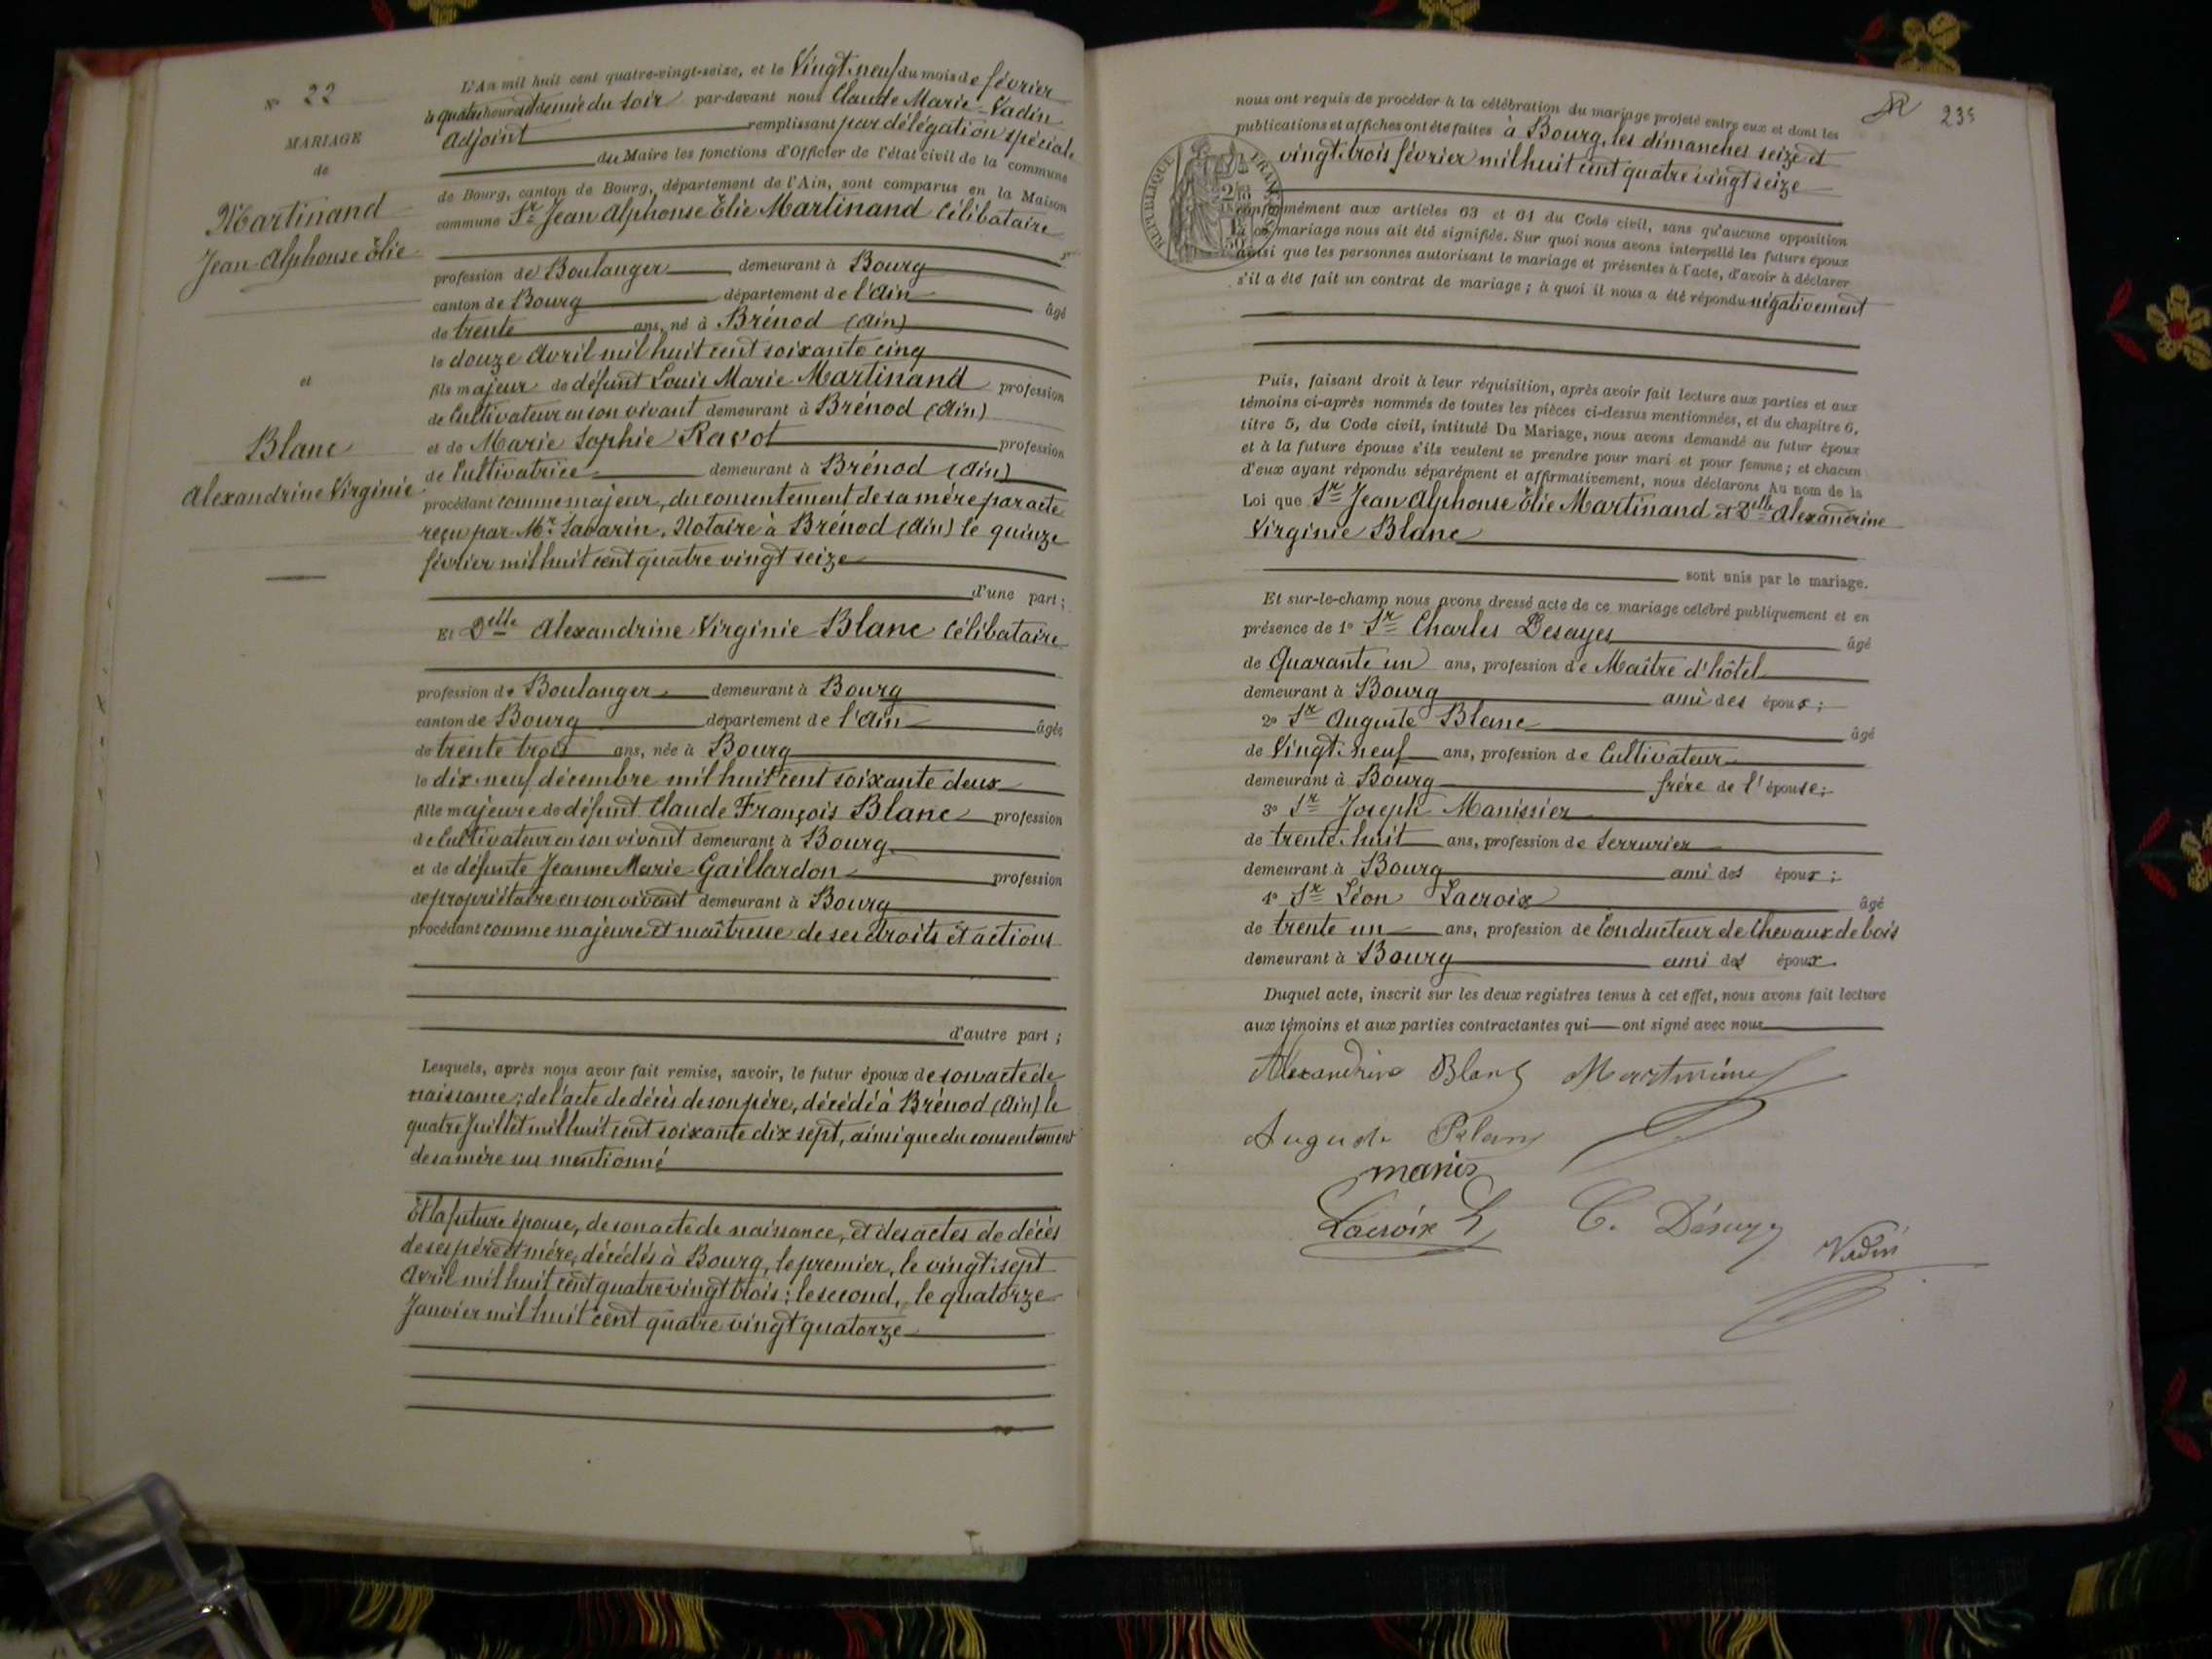 N° 22
MARIAGE
de
Martinand
Jean Alphonse Élie
et
Blanc
Alexandrine Virginie
L'An mil huit cent quatre-vingt-seize, et le Vingt-neuf du mois de février
à quatre heures et demie du soir par-devant nous Claude Marie Vadin
adjoint remplissant par délégation spéciale
du Maire les fonctions d'Officier de l'état civil de la commune
de Bourg, canton de Bourg, département de l'Ain, sont comparus en la Maison
commune Sr Jean Alphonse Élie Martinand Célibataire
profession de Boulanger demeurant à Bourg
canton de Bourg département de l'Ain âgé
de trente ans, né à Brénod (Ain)
le douze Avril mil huit cent soixante cinq
fils majeur de défunt Louis Marie Martinand profession
de Cultivateur en son vivant demeurant à Brénod (Ain)
et de Marie Sophie Ravot profession
de Cultivatrice demeurant à Brénod (Ain)
procédant comme majeur, du consentement de sa mère par acte
reçu par Mr Savarin, Notaire à Brénod (Ain) le quinze
février mil huit cent quatre vingt seize
d'une part ;
Et Delle Alexandrine Virginie Blanc Célibataire
profession de Boulanger demeurant à Bourg
canton de Bourg département de l'Ain âgée
de trente trois ans, née à Bourg
le dix-neuf décembre mil huit cent soixante deux
fille majeure de défunt Claude François Blanc profession
de Cultivateur en son vivant demeurant à Bourg
et de défunte Jeanne Marie Gaillardon profession
de propriétaire en son vivant demeurant à Bourg
procédant comme majeure et maîtresse de ses droits et actions
d'autre part ;
Lesquels, après nous avoir fait remise, savoir, le futur époux de son acte de
naissance ; de l'acte de décès de son père, décédé à Brénod (Ain) le
quatre Juillet mil huit cent soixante dix sept, ainsi que du consentement
de sa mère sus mentionné
Et la future épouse, de son acte de naissance, et des actes de décès
de ses père et mère, décédés à Bourg, le premier, le vingt-sept
Avril mil huit cent quatre vingt trois ; le second, le quatorze
Janvier mil huit cent quatre vingt quatorze
235
nous ont requis de procéder à la célébration du mariage projeté entre eux et dont les
publications et affiches ont été faites à Bourg, les dimanches seize et
vingt-trois février mil huit cent quatre vingt seize
RÉPUBLIQUE FRANÇAISE
conformément aux articles 63 et 64 du Code civil, sans qu'aucune opposition
à ce mariage nous ait été signifiée. Sur quoi nous avons interpellé les futurs époux
ainsi que les personnes autorisant le mariage et présentes à l'acte, d'avoir à déclarer
s'il a été fait un contrat de mariage ; à quoi il nous a été répondu négativement
Puis, faisant droit à leur réquisition, après avoir fait lecture aux parties et aux
témoins ci-après nommés de toutes les pièces ci-dessus mentionnées, et du chapitre 6,
titre 5, du Code civil, intitulé Du Mariage, nous avons demandé au futur époux
et à la future épouse s'ils veulent se prendre pour mari et pour femme ; et chacun
d'eux ayant répondu séparément et affirmativement, nous déclarons Au nom de la
Loi que Sr Jean Alphonse Élie Martinand et Delle Alexandrine
Virginie Blanc
sont unis par le mariage.
Et sur-le-champ nous avons dressé acte de ce mariage célébré publiquement et en
présence de 1° Sr Charles Desayes âgé
de Quarante un ans, profession de Maître d'hôtel
demeurant à Bourg ami des époux ;
2° Sr Auguste Blanc âgé
de Vingt-neuf ans, profession de Cultivateur
demeurant à Bourg frère de l'épouse ;
3° Sr Joseph Manissier
de trente-huit ans, profession de Serrurier
demeurant à Bourg ami des époux ;
4° Sr Léon Lacroix âgé
de trente un ans, profession de Conducteur de Chevaux de bois
demeurant à Bourg ami des époux
Duquel acte, inscrit sur les deux registres tenus à cet effet, nous avons fait lecture
aux témoins et aux parties contractantes qui ont signé avec nous
Alexandrine Blanc Martinand
Auguste Blanc
Lacroix L C. Désayes
Vadin